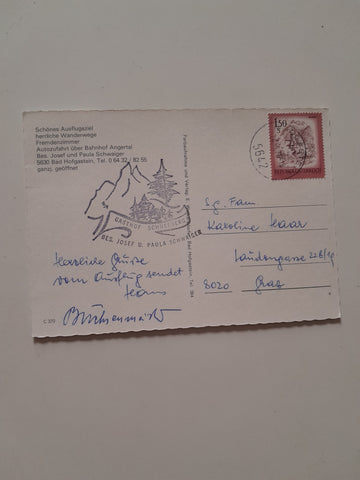 Schönes Ausflugsziel
herrliche Wanderwege
Fremdenzimmer
Autozufahrt über Bahnhof Angertal
Bes. Josef und Paula Schwaiger
5630 Bad Hofgastein, Tel. 0 64 32 / 82 55
ganzj. geöffnet
GASTHOF
BES. JOSEF U. PAULA SCHWAIGER
Herzliche Grüße
vom Ausflug sendet
Hans
C 370
Bad Hofgastein, Tel. 384
1.50
S
REPUBLIK ÖSTERREICH
5642
Sg. Fam.
Karoline Haar
8020 Graz